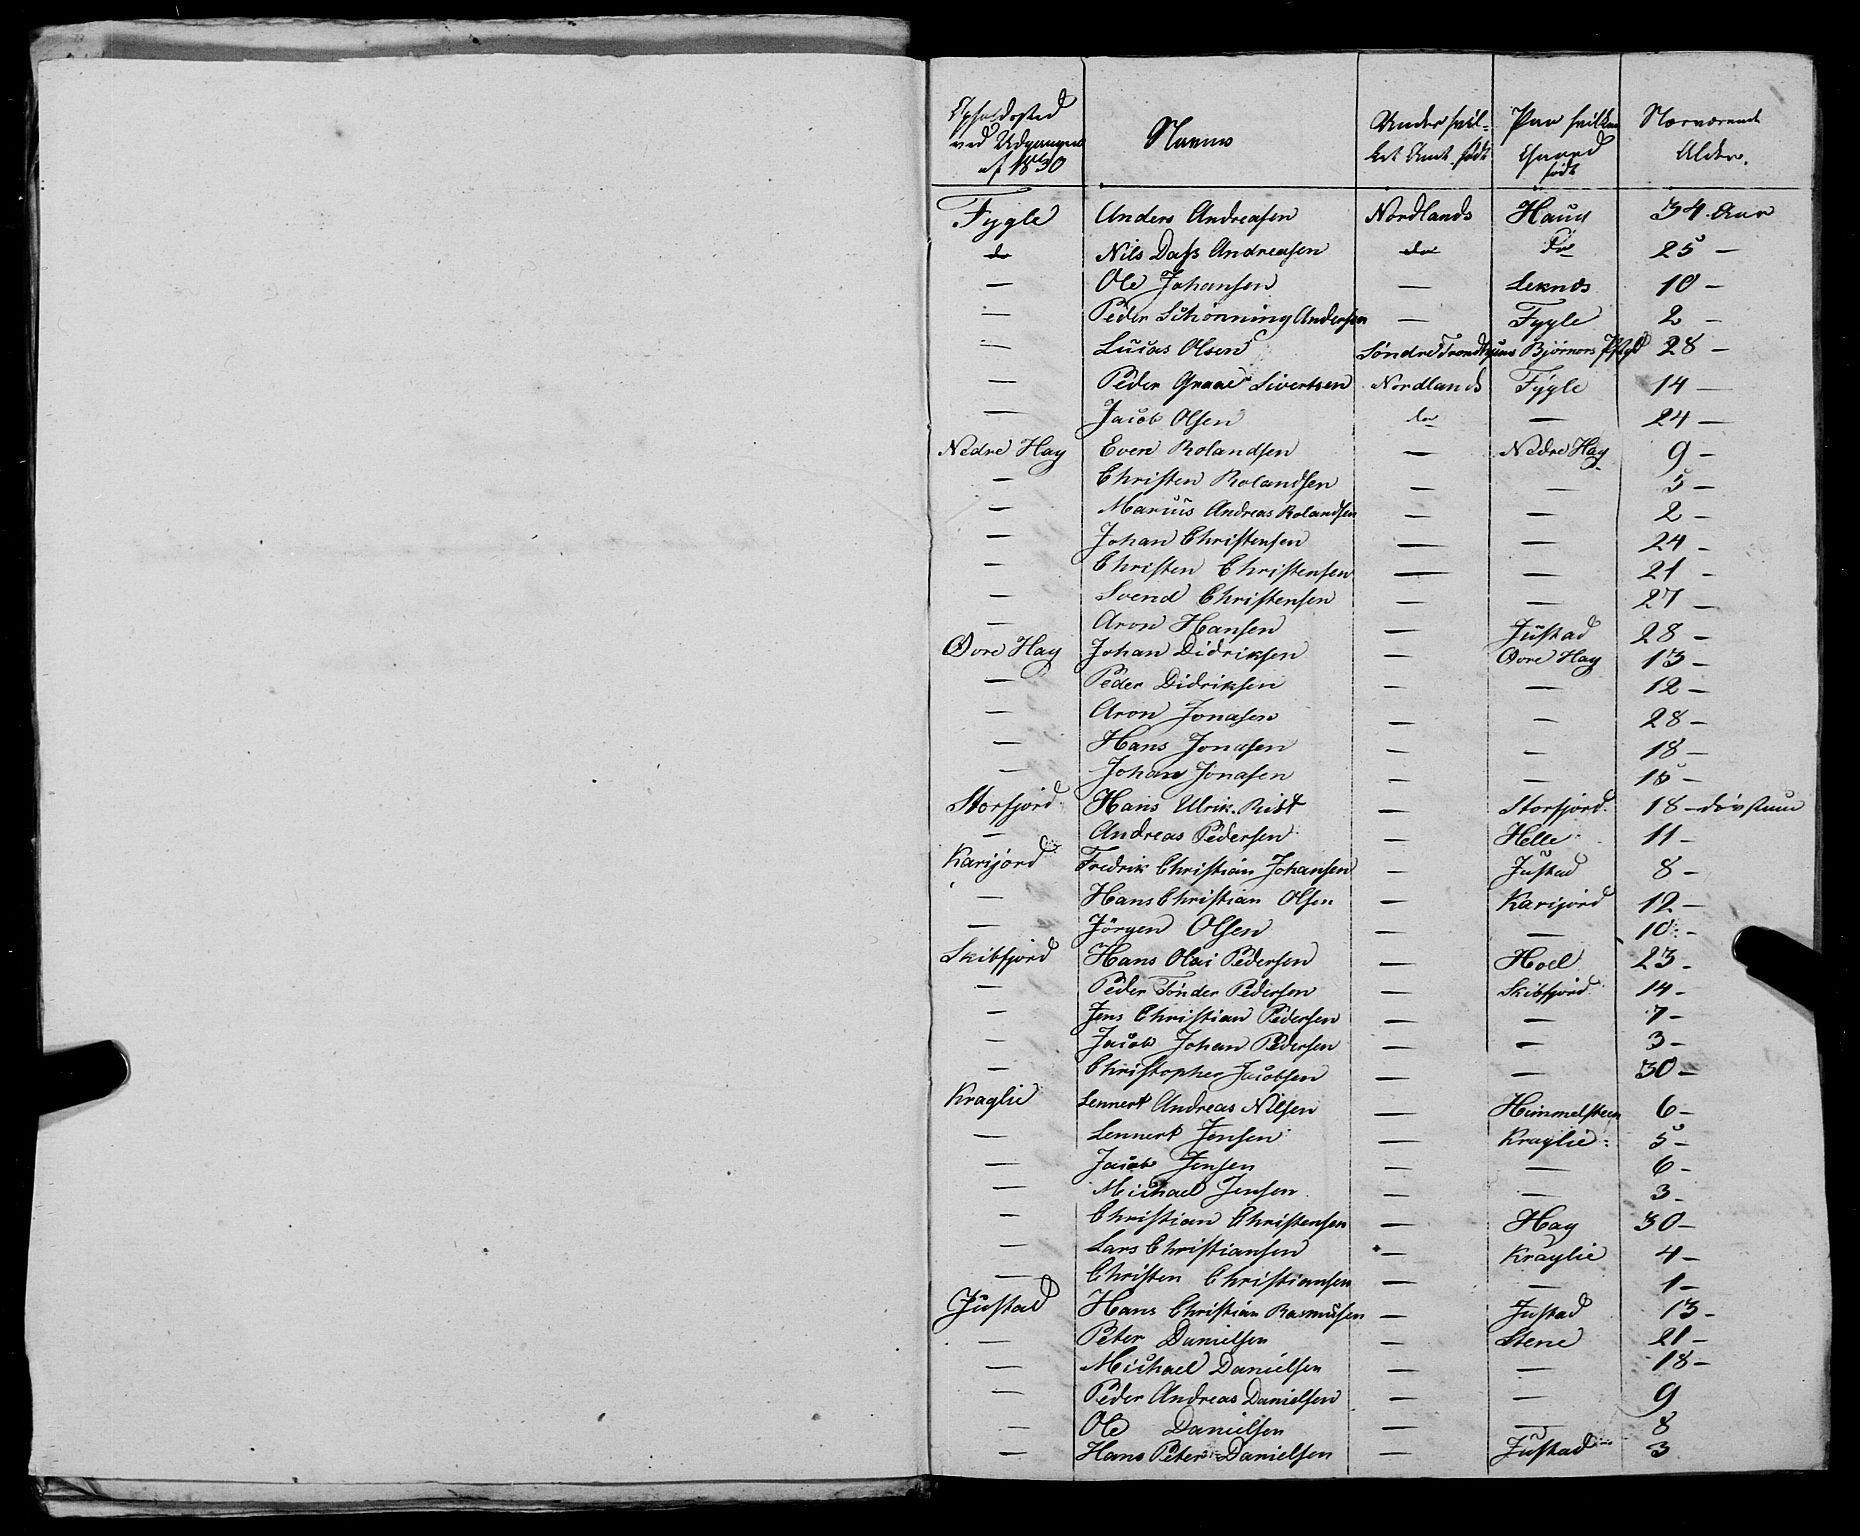 Opholdssted ved Udgangen af 1830 | Navne | Under hvilket Amt født | Paa hvilken Gaard født | Nærværende Alder.
Fygle | Anders Andreasen | Nordlands | Haug | 34 Aar
do | Nils Dass Andreasen | do | do | 25 –
— | Ole Johansen | — | Leknes | 10 –
— | Peder Schønning Andersen | — | Fygle | 2 –
— | Lucas Olsen | Søndre Trondhjems | Bjørnørs Pstgd | 28 –
— | Peder Graae Sivertsen | Nordlands | Fygle | 14 —
— | Jacob Olsen | do | — | 24 —
Nedre Hag | Even Rolandsen | — | Nedre Hag | 9 –
— | Christen Rolandsen | — | — | 5 –
— | Marius Andreas Rolandsen | — | — | 2 –
— | Johan Christensen | — | — | 24 –
— | Christen Christensen | — | — | 21 –
— | Svend Christensen | — | — | 27 –
— | Aron Hansen | — | Justad | 28 –
Øvre Hag | Johan Didriksen | — | Øvre Hag | 13 –
— | Peder Didriksen | — | — | 12 –
— | Aron Jonasen | — | — | 28 –
— | Hans Jonasen | — | — | 18 –
— | Johan Jonasen | — | — | –
Storfjord | Hans Ulrik Rist | — | Storfjord | 18 – døvstum
— | Andreas Pedersen | — | Helle | 11 –
Karijord | Fredrik Christian Johansen | — | Justad | 8 –
— | Hans Christian Olsen | — | Karijord | 12 –
— | Jörgen Olsen | — | — | 10 –
Skibfjord | Hans Olai Pedersen | — | Hoel | 23 –
— | Peder Tønder Pedersen | — | Skibfjord | 14 –
— | Jens Christian Pedersen | — | — | 7 –
— | Jacob Johan Pedersen | — | — | 3 –
— | Christopher Jacobsen | — | — | 30 –
Kraglie | Lennert Andreas Nilsen | — | Himmelsteen | 6 –
— | Lennert Jensen | — | Kraglie | 5 –
— | Jacob Jensen | — | — | 6 –
— | Michael Jensen | — | — | 3 –
— | Christian Christensen | — | Hag | 30 –
— | Lars Christiansen | — | Kraglie | 4 –
— | Christen Christiansen | — | — | 1 –
Justad | Hans Christian Rasmusen | — | Justad | 13 –
— | Peter Danielsen | — | Stene | 21 –
— | Michael Danielsen | — | — | 18 –
— | Peder Andreas Danielsen | — | — | 9
— | Ole Danielsen | — | — | 8
— | Hans Peter Danielsen | — | Justad | 3